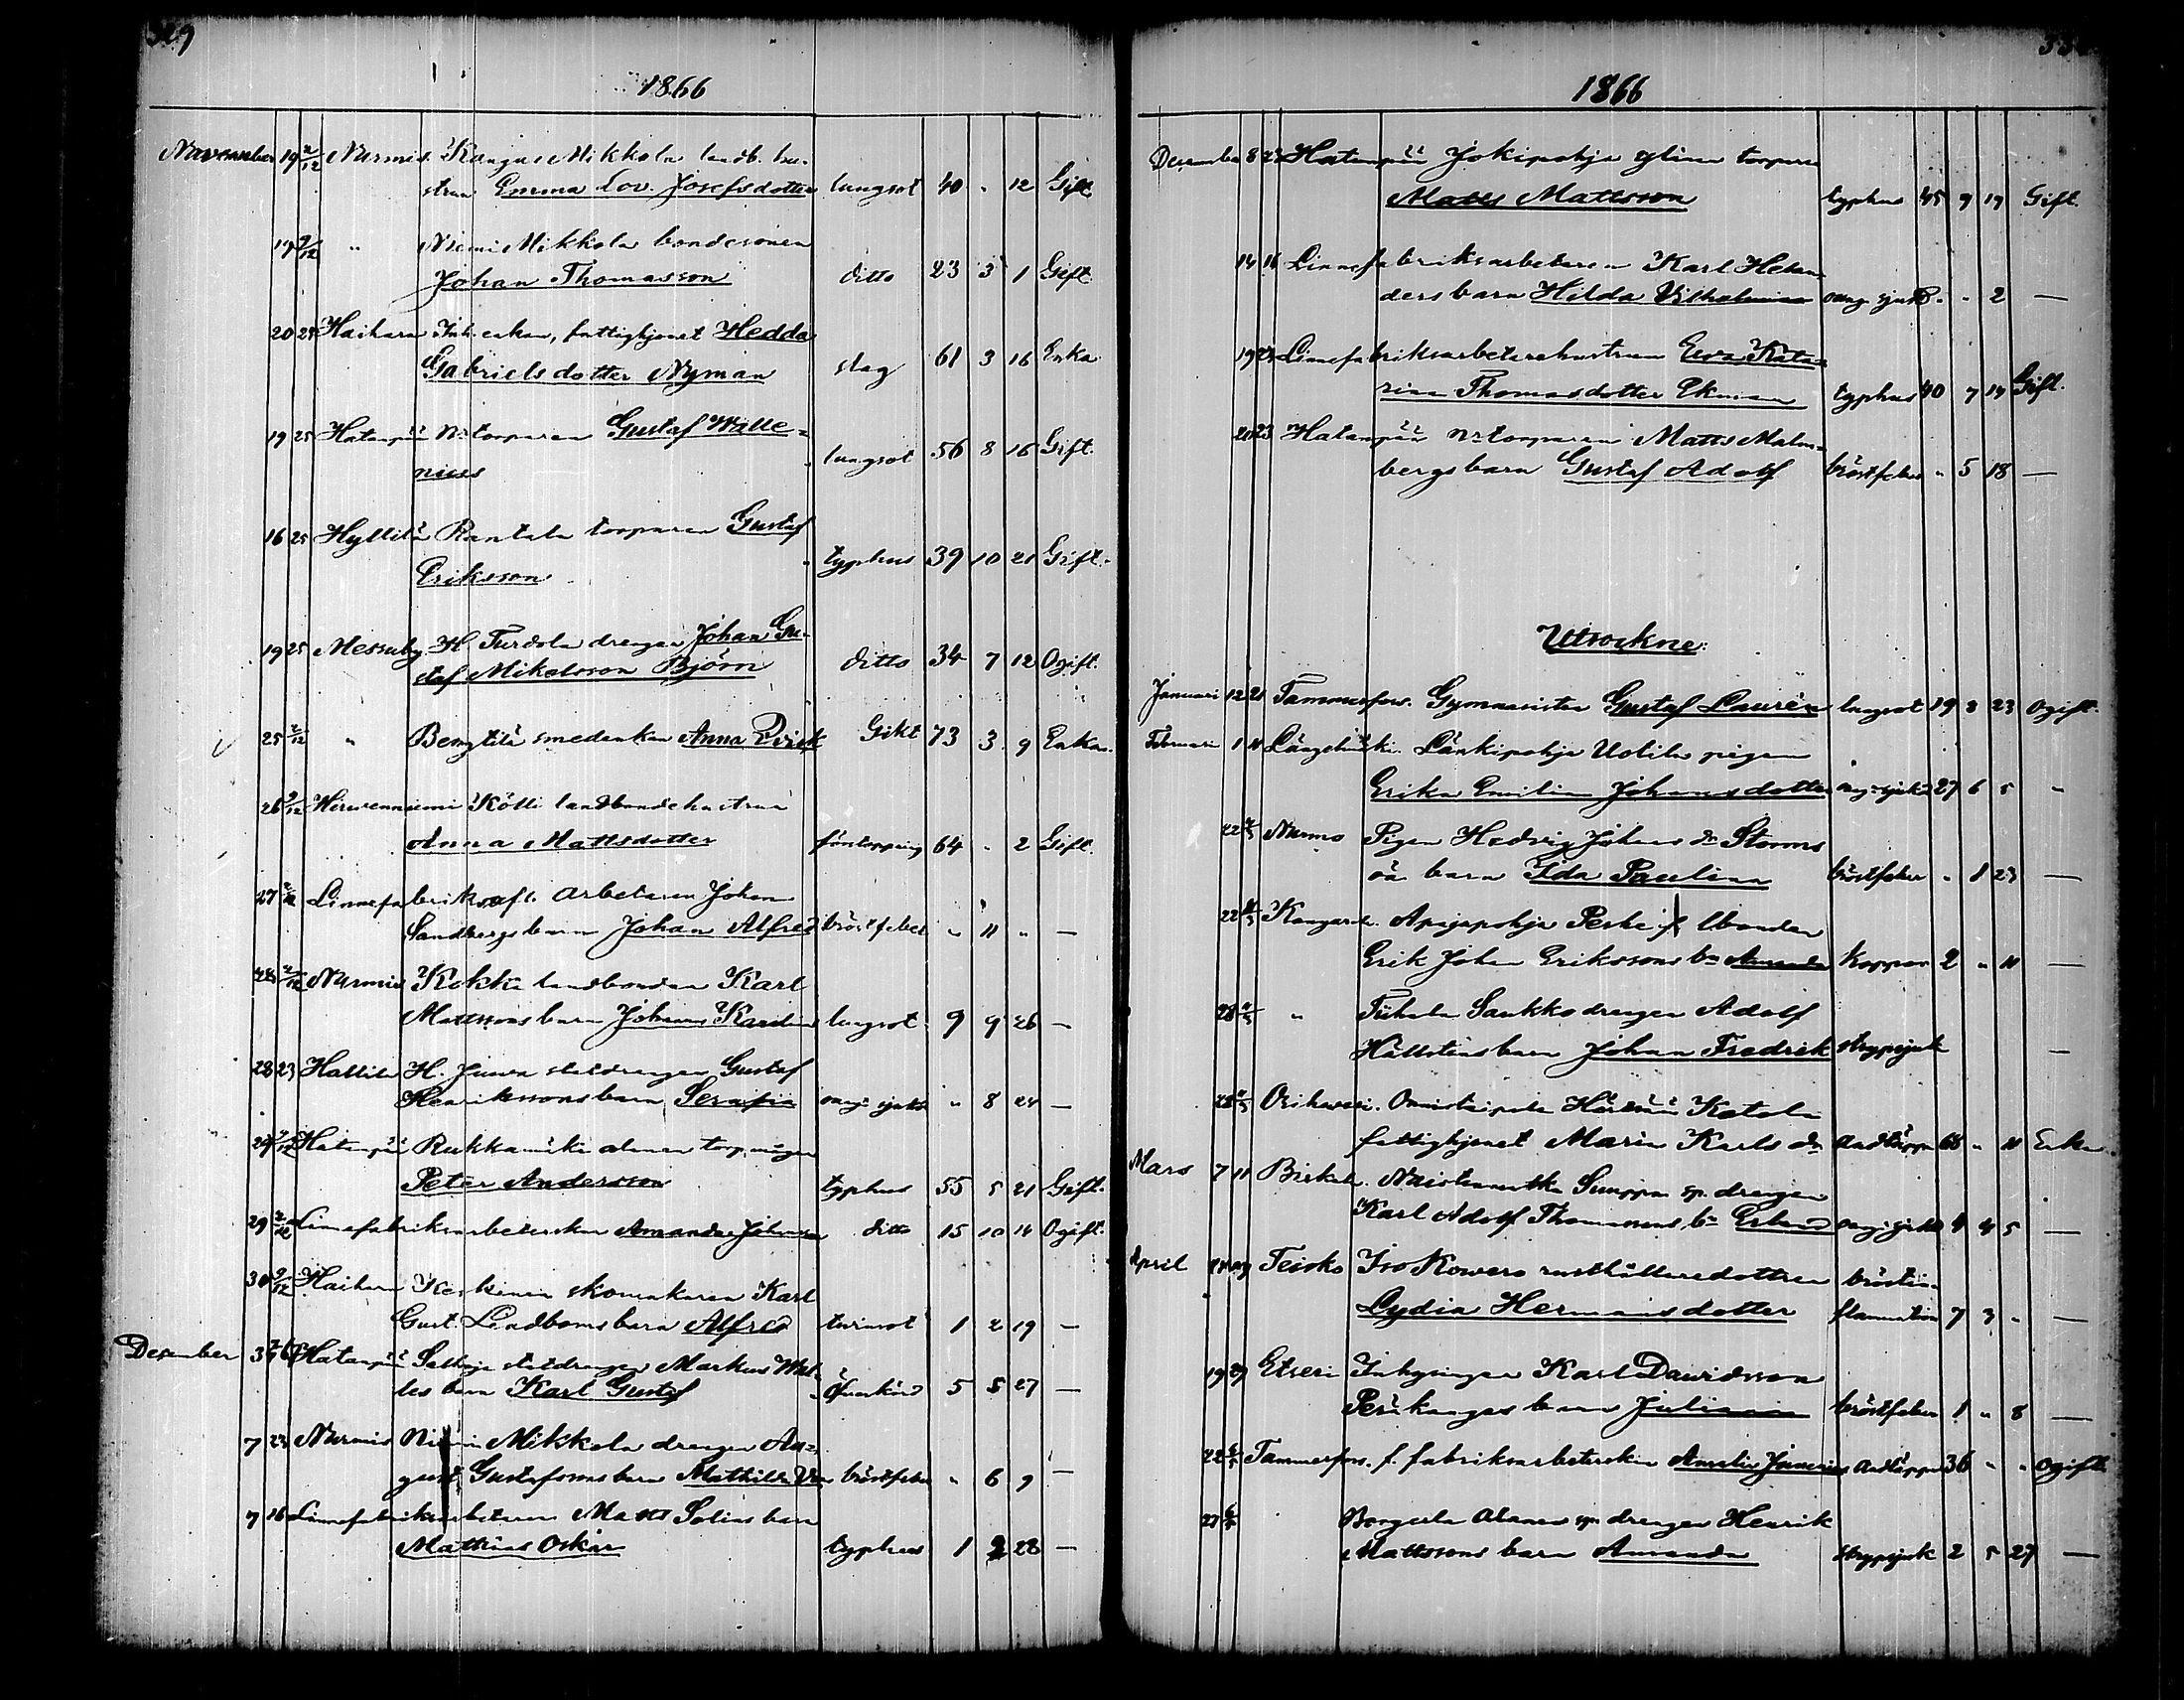 329
1866
November 19 2/12 Nurmis Kangas Mikkola landb. hu-
strun Emma Lov. Josefsdotter lungsot 40 " 12 Gift
19 9/12 " Niemi Mikkola bondesonen
Johan Thomasson ditto 23 3 1 Gift
20 29 Haihara Inh. enkan, fattighjonet Hedda
Gabrielsdotter Nyman slag 61 3 16 Enka
19 25 Hatanpää torparen Gustaf Walle-
nius lungsot 56 8 16 Gift.
16 25 Hyllilä Rantala torparen Gustaf
Eriksson typhus 39 10 21 Gift.
19 25 Messuby H. Turdola drengen Johan Gu-
staf Mikalsson Björn ditto 34 7 12 Ogift.
25 2/12 " Bengtilä smedenkan Anna Gikt 73 3 9 Enka.
26 9/12 Hirvenniemi Kölli landbondehustrun
Anna Mattsdotter förstoppning 64 " 2 Gift.
27 2/12 Linnefabriks arbetaren Johan
Sandbergs barn Johan Alfred bröstfeber " 11 " —
28 2/12 Nurmis Kokki landbonden Karl
Mattssons barn Johannes lungsot 9 9 26 —
28 23 Hallila H. Juva statdrengen Gustaf
Henrikssons barn Serafia " 8 24 —
29 Hatanpää Rukkamäki torp.
Peter Andersson typhus 55 5 21 Gift.
29 2/12 Linnefabriksarbeterskan Amanda ditto 15 10 14 Ogift.
30 9/12 Haihara Keskinen skomakaren Karl
Gust. Lindboms barn Alfred tvinsot 1 2 19 —
December 3 Hatanpää statdrengen Markus
barn Karl Gustaf 5 5 27 —
7 23 Nurmis Niemi Mikkola drengen Au-
gust Gustafssons barn Mathilda bröstfeber " 6 9 —
7 16 Linnefabriksarbetaren Matts Solins barn
Mattias Oskar typhus 1 2 28 —
1866
December 8 23 Hatanpää Jokipohja torparen
Matts Mattsson typhus 45 9 19 Gift.
14 16 Linnefabriksarbetaren Karl Helan-
ders barn Hilda Vilhelmina " " 2 —
19 23 Linnefabriksarbetarehustrun Eva Kata-
rina Thomasdotter Ekman typhus 40 7 14 Gift.
20 23 Hatanpää torparen Matts Malm-
bergs barn Gustaf Adolf bröstfeber " 5 18 —
Utsockne:
Januari 12 21 Tammerfors. Gymnasisten Gustaf Laurén lungsot 19 8 23 Ogift.
Februari 1 11 Längelmäki. Länkipohja Uotila pigan
Erika Emilia Johansdotter 27 6 5 "
22 Nurmo Pigan Hedvig Johans dr Storms
barn Ida Paulina bröstfeber " 1 23 —
22 Kangasala. Apajapohja Peska bonden
Erik Johan Erikssons bn Amanda Koppor 2 " 11 —
28 " Tiihala Saukko drengen Adolf
Hällstens barn Johan Fredrik strypsjuk —
28 Orihvesi. Katala
fattighjonet Maria Karls dr Andtäppa 68 " 11 Enka
Mars 7 11 Birkala. Naistenmatka Sumppu drengen
Karl Adolf Thomassons bn Erland 4 4 5 —
April 29 Teisko Iso Kovero rusthållaredottren bröstin-
Lydia Hermansdotter flammation 7 3 " —
19 29 Etseri Inhysingen Karl Davidsson
Peräkangas barn Juliana bröstfeber 1 " 8 —
22 Tammerfors. f. fabriksarbeterskan Amalia Andtäppa 36 " " Ogift
27 drengen Henrik
Mattssons barn Amanda strypsjuk 2 5 27 —